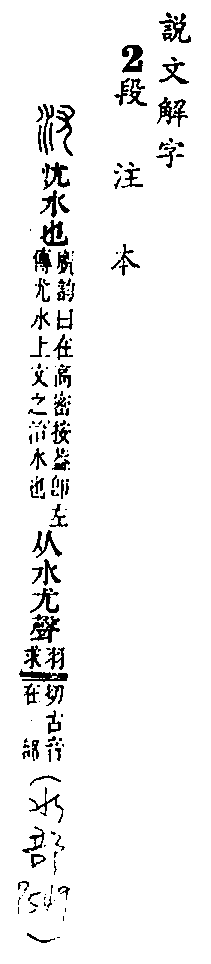 說文解字
2段注本
沋水也
廣韵曰在高密按葢卽左
傳尤水上文之治水也
从水尤聲
羽求
切古音
在 部
(水部
P549)